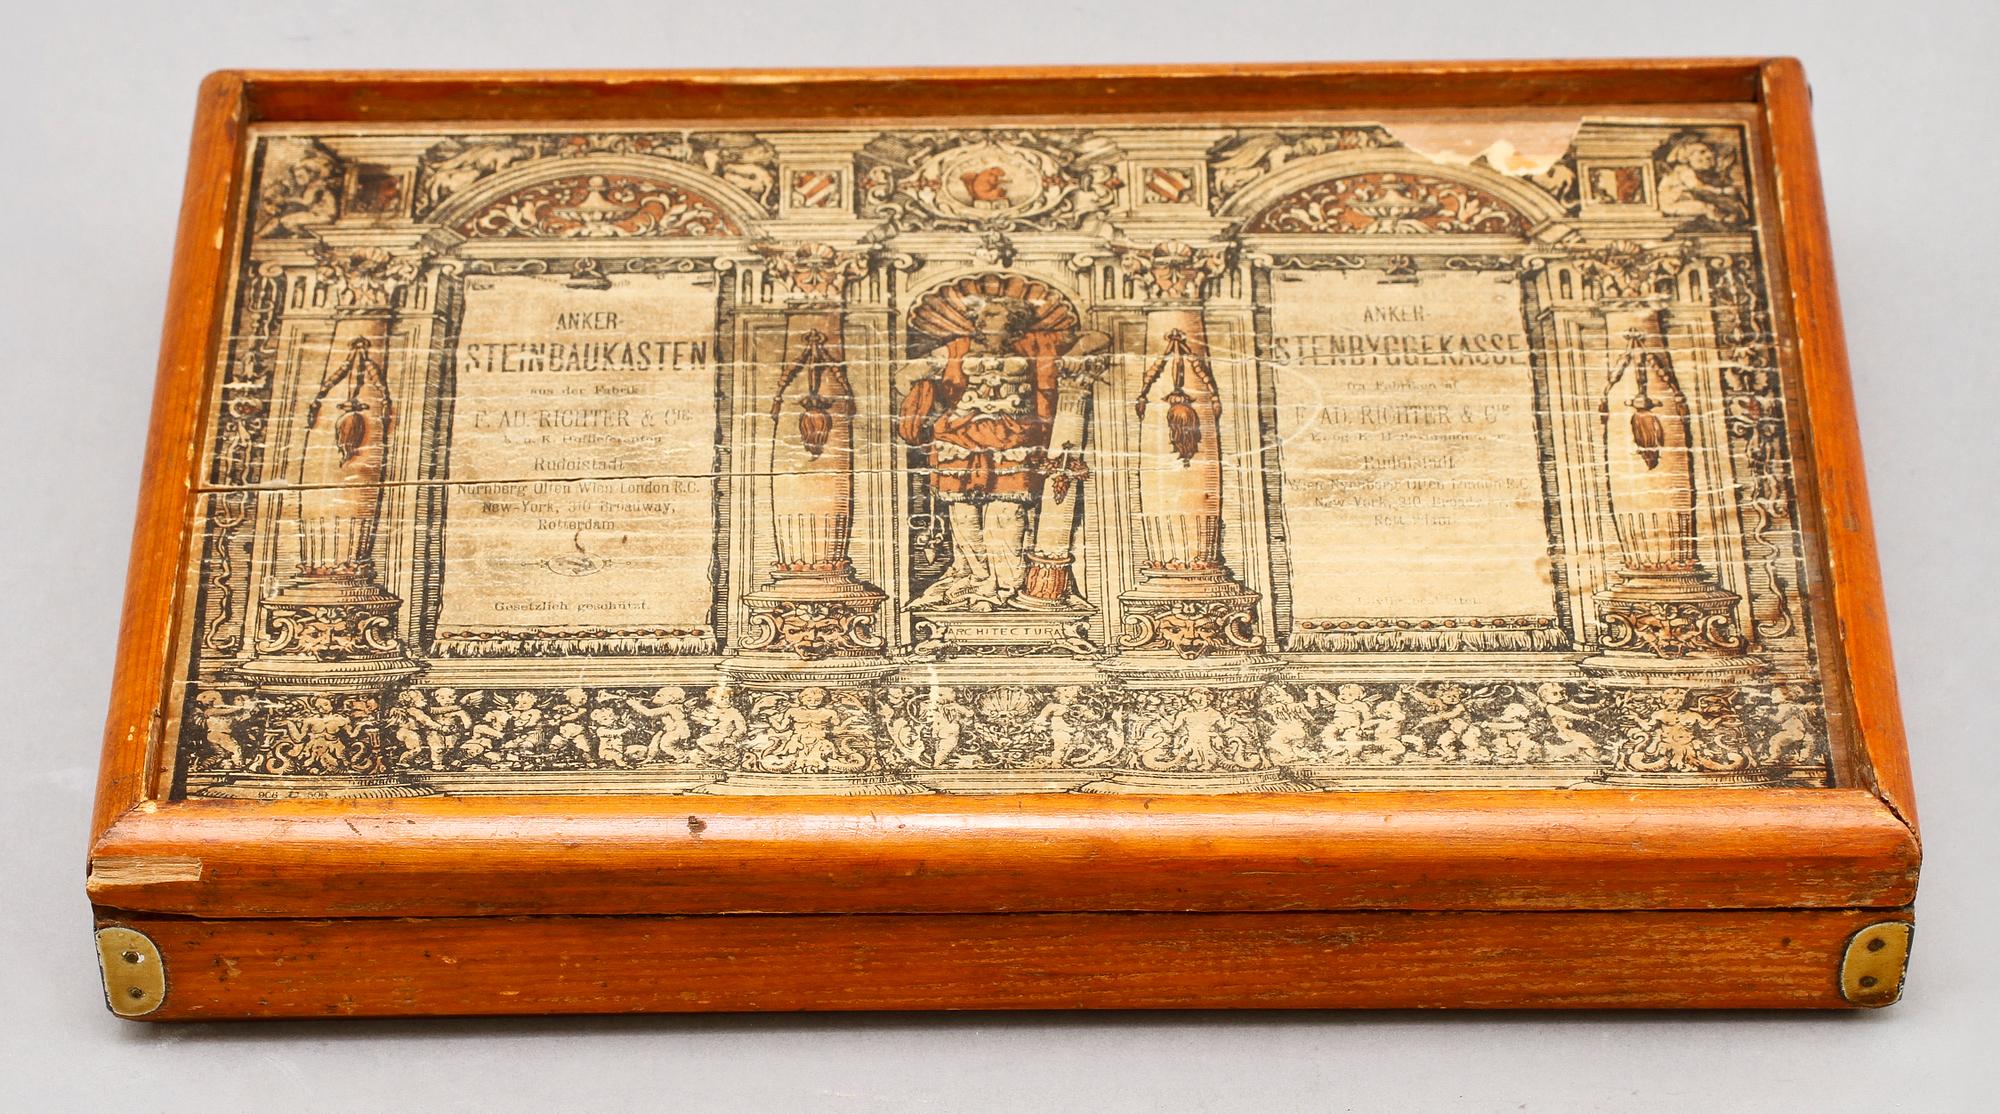 ANKER-
STEINBAUKASTEN
aus der Fabrik
F. AD. RICHTER & Cie.
k. u. K. Hoflieferanten
Rudolstadt
Nürnberg Olten Wien London E.C.
New-York, 310 Broadway,
Rotterdam
Gesetzlich geschützt.
ARCHITECTURA
ANKER-
STENBYGGEKASSE
fra Fabriken af
F. AD. RICHTER & Cie
K. og K.
Rudolstadt
Wien Nyrnberg Olten London E.C.
New-York, 310 Broadway,